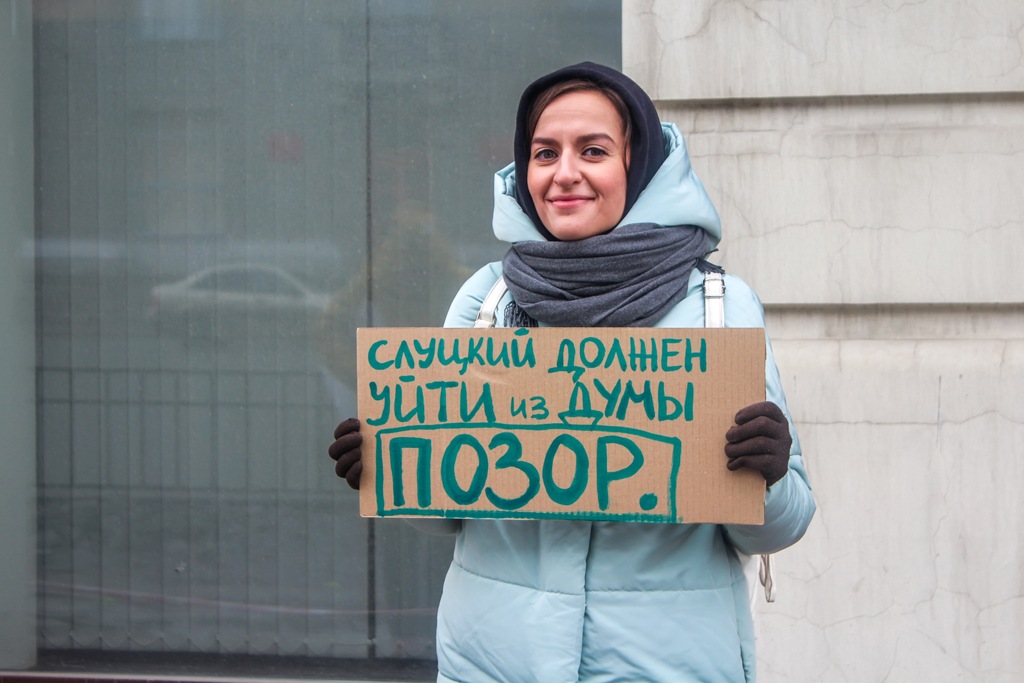 СЛУЦКИЙ ДОЛЖЕН
УЙТИ ИЗ ДУМЫ
ПОЗОР.